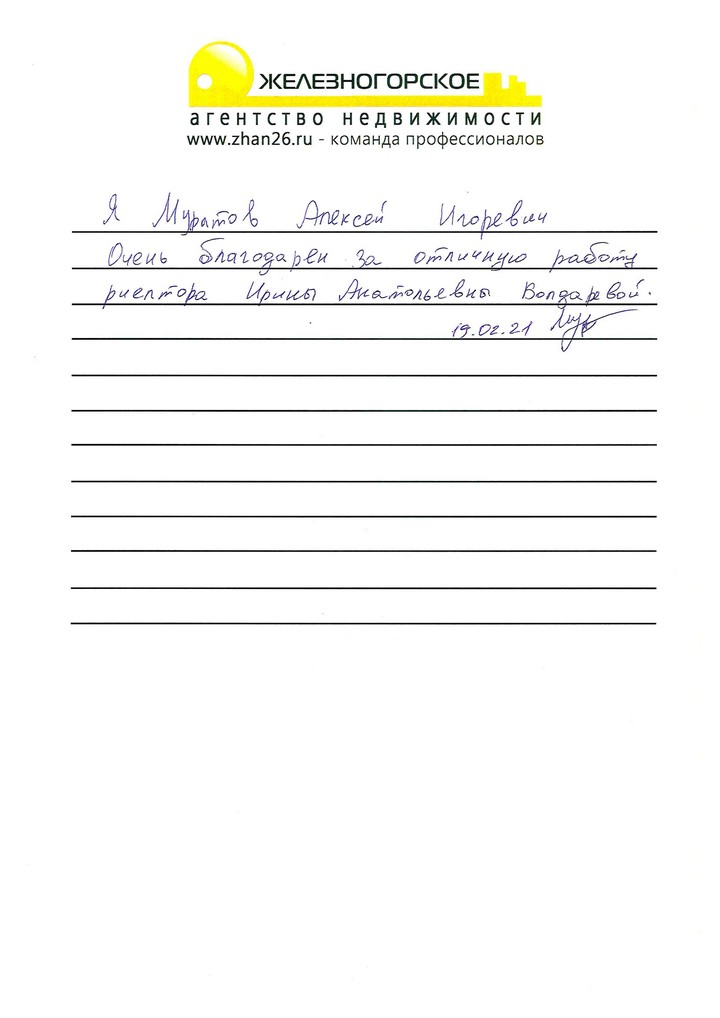 ЖЕЛЕЗНОГОРСКОЕ
агентство недвижимости
www.zhan26.ru - команда профессионалов
Я Муратов Алексей Игоревич
Очень благодарен за отличную работу
риелтора Ирины Анатольевны Волдаревой.
19.02.21